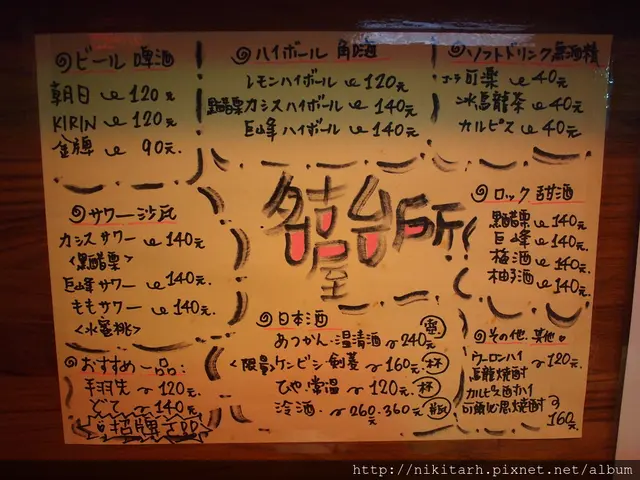 ビール 啤酒
朝日 120元
KIRIN 120元
金牌 90元.
ハイボール 角嗨
レモンハイボール 120元
黑醋栗カシスハイボール 140元
巨峰ハイボール 140元
ソフトドリンク 無酒精
コーラ 可樂 40元
冰烏龍茶 40元
カルピス 40元
サワー 沙瓦
カシスサワー 140元
<黑醋栗>
巨峰サワー 140元
ももサワー 140元
<水蜜桃>
台所
ロック 甜酒
黑醋栗 140元
巨峰 140元
梅酒 140元
柚子酒 140元
日本酒
あつかん・溫清酒 240元
<限量>ケンビシ・剣菱 160元 杯
ひや・常溫 120元 杯
冷酒 260元.360元
おすすめ一品:
手羽先 120元
どて 140元
招牌
その他.其他
ウーロンハイ 120元
烏龍燒酎
カルピス酎ハイ
可爾必思燒酎 160元
http://nikitarh.pixnet.net/album